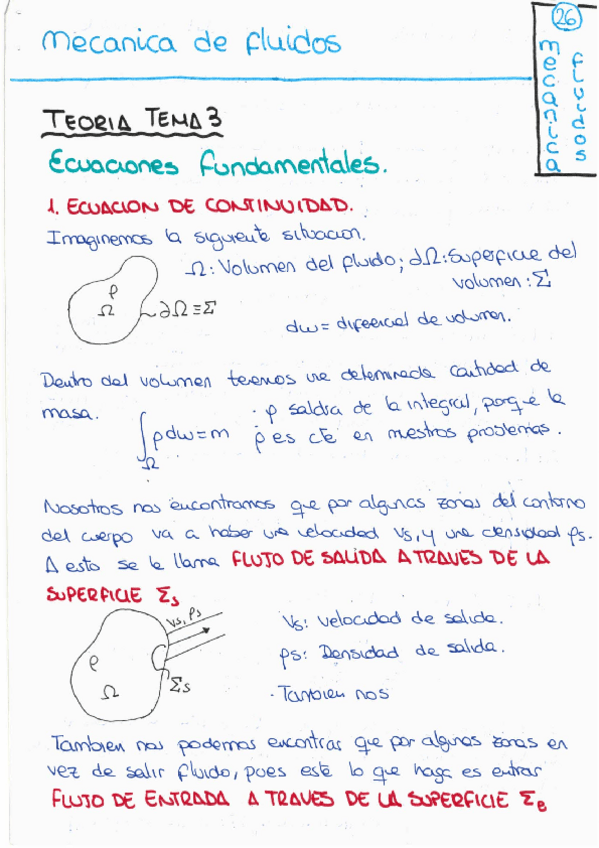 26
mecanica
fluidos
mecanica de fluidos
TEORIA TEMA 3
Ecuaciones fundamentales.
1. ECUACION DE CONTINUIDAD.
Imaginemos la siguiente situacion.
Ω: Volumen del fluido; ∂Ω: Superficie del
volumen: Σ
ρ
Ω
∂Ω ≡ Σ
dw = difeercial de volumen.
Dentro del volumen tenemos una determinada cantidad de
masa.
∫Ω ρ dw = m
· ρ saldra de la integral, porque la
ρ es cte en nuestros problemas.
Nosotros nos encontramos que por algunas zonas del contorno
del cuerpo va a haber una velocidad Vs, y una densidad ρs.
A esto se le llama FLUJO DE SALIDA A TRAVES DE LA
SUPERFICIE Σs
Vs, ρs
ρ
Ω
Σs
Vs: Velocidad de salida.
ρs: Densidad de salida.
· Tambien nos
Tambien nos podemos encontrar que por algunas zonas en
vez de salir fluido, pues este lo que haga es entrar
FLUJO DE ENTRADA A TRAVES DE LA SUPERFICIE Σe